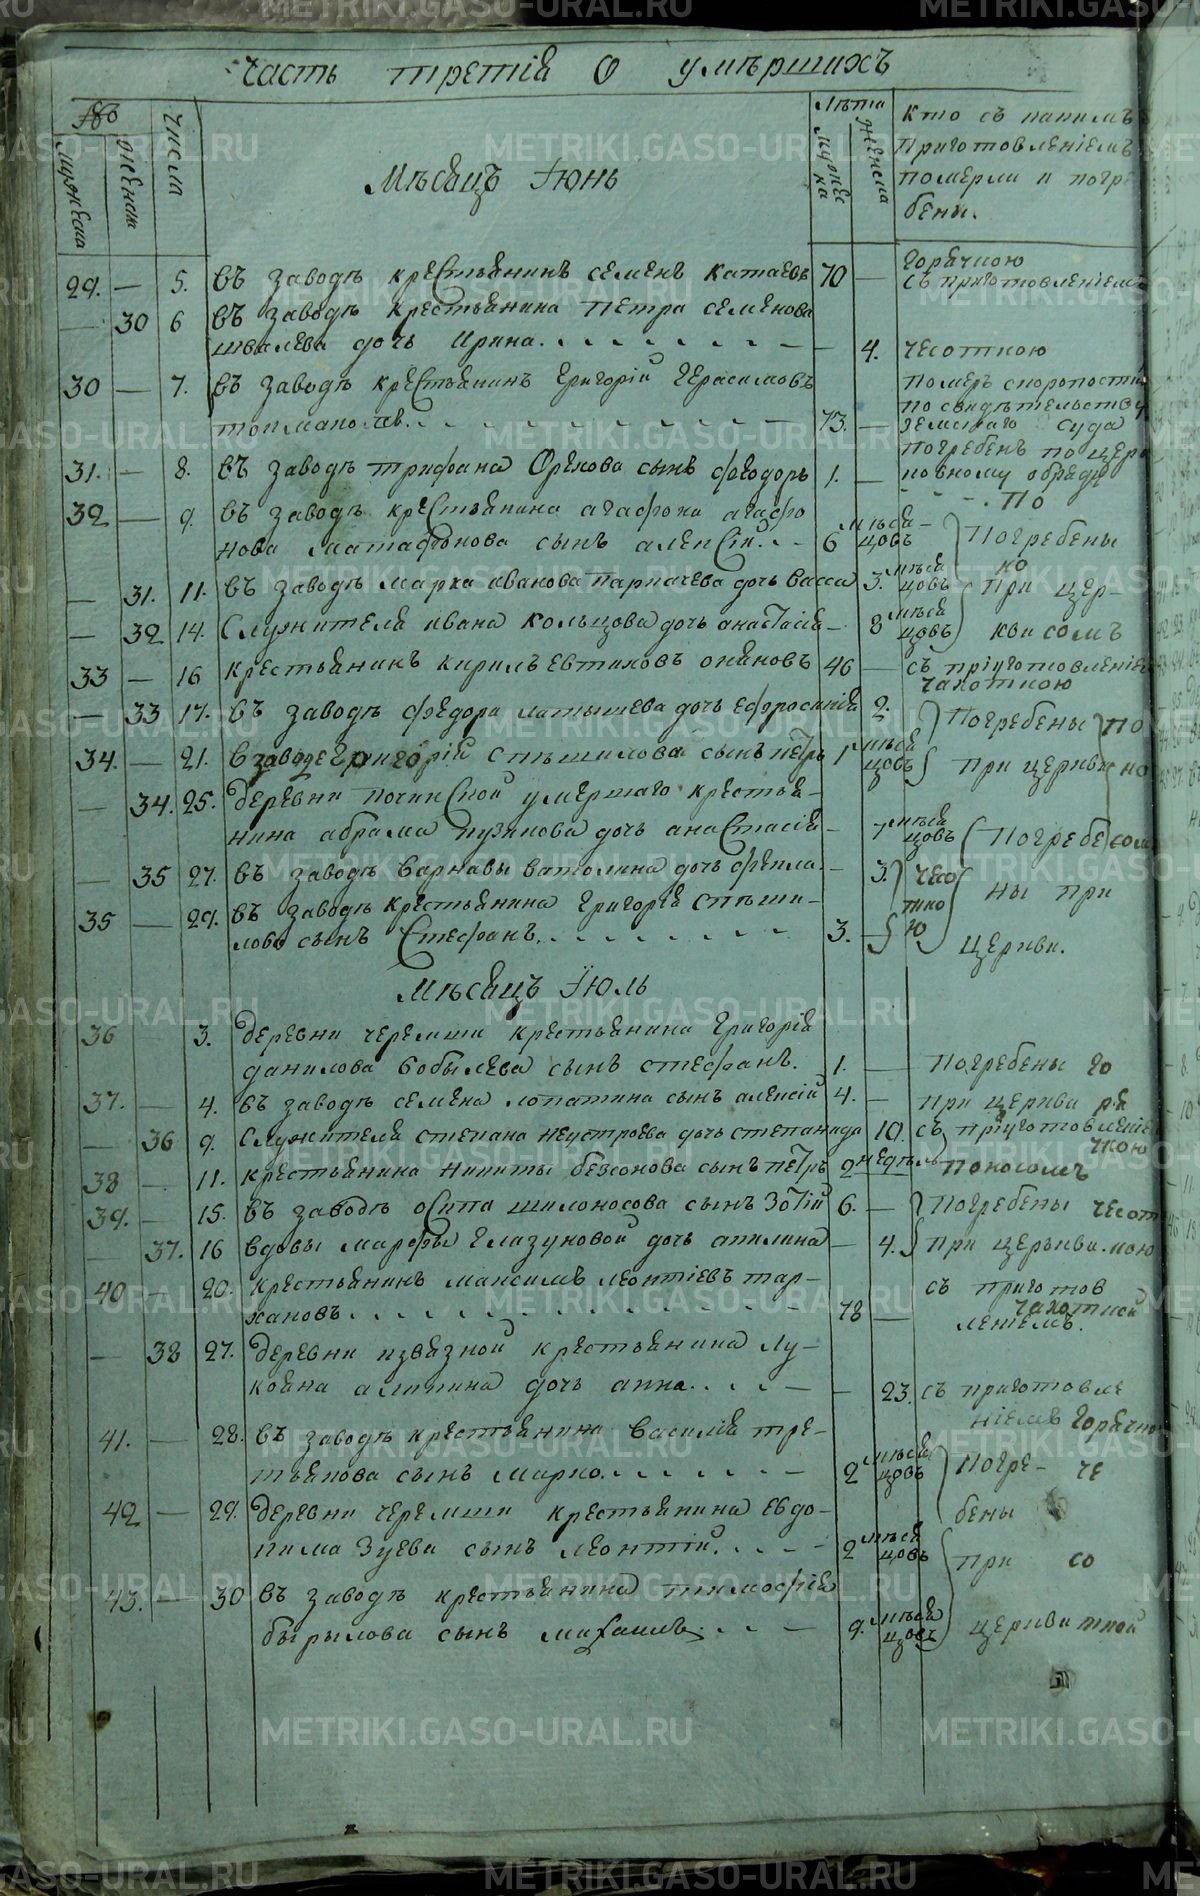 Часть третія О умѣршихъ
№
мужеска
женска
Числа
Мѣсяцъ Іюнь
Лѣта
мужеска
Женска
Кто съ какимъ
Приготовленіемъ
померли и погре
бены.
29. — 5. Въ заводѣ крестьянинъ семенъ катаевъ 70 — Горячкою
съ приготовленіемъ
— 30 6 Въ заводѣ крестьянина Петра семенова
швалева дочь Ирина. — 4. Чесоткою
30 — 7. Въ заводѣ крестьянинъ Григорій Герасимовъ
73. — Померъ скоропостиж
по свидѣтельству
земскаго Суда
погребенъ по церк
31. — 8. Въ заводѣ трифана Орехова сынъ феодоръ 1. — ковному обряду
32 — 9. Въ заводѣ крестьянина агафона агафо
нова матафонова сынъ алексій. — 6 мѣся
цовъ Погребены По
— 31. 11. Въ заводѣ марка иванова Парначева дочь Васса 3. мѣся
цовъ При цер- но
— 32 14. Служителя ивана кольцова дочь анастасія — 8 мѣся
цовъ кви сомъ
33 — 16 крестьянинъ кирилъ евтиховъ 46 — съ пріуготовленіе
Чахоткою
— 33 17. Въ заводѣ федора латышева дочь ефросинія 2. Погребены по
34. — 21. В заводе Григорій спѣшилова сынъ петръ 1 мѣся
цовъ При церкви но
— 34. 25. Деревни починской умершаго крестья-
нина абрама пузикова дочь анастасія — 7 мѣся
цовъ Погребе сом
— 35 27. Въ заводѣ Варнавы ватолина дочь фекла. — 3. Чесо
ткою ны при
35 — 29. Въ заводѣ крестьянина Григорія спѣши-
лова сынъ Стефанъ. 3. — церкви.
Мѣсяцъ Іюль
36 3. Деревни черемши крестьянина Григорія
данилова бобылева сынъ стефанъ. 1. — Погребены Го
37. — 4. Въ заводѣ семена лопатина сынъ алексій 4. — При церкви ря
— 36 9. Служителя степана неустроева дочь степанида 10. съ пріуготовленіе
чкою
38 — 11. крестьянина никиты безсонова сынъ петръ 2 недѣль Поносомъ
39. — 15. Въ заводѣ осипа шилоносова сынъ Зотій 6. — Погребены чесот
— 37. 16 Вдовы марфы Глазуновой дочь акилина — 4. При церькви. кою
40 — 20. Крестьянинъ максимъ леонтіевъ тар-
хановъ 78 — съ приготов
леніемъ. Чахоткой
— 38 27. Деревни извязной крестьянина Лу-
дочь анна. — 23. съ приготовле
ніемъ Горячко
41. — 28. Въ заводѣ крестьянина Василія тре-
тьякова сынъ марко. 2 мѣся
цовъ Погре- че
42 — 29. Деревни черемши крестьянина евдо-
кима Зуева сынъ леонтій. 2 мѣся
цовъ бены
При со
43. — 30 Въ заводѣ крестьянина тимофѣя
бырылова сынъ михаилъ. 9. мѣся
цовъ церкви ткой
METRIKI.GASO-URAL.RU